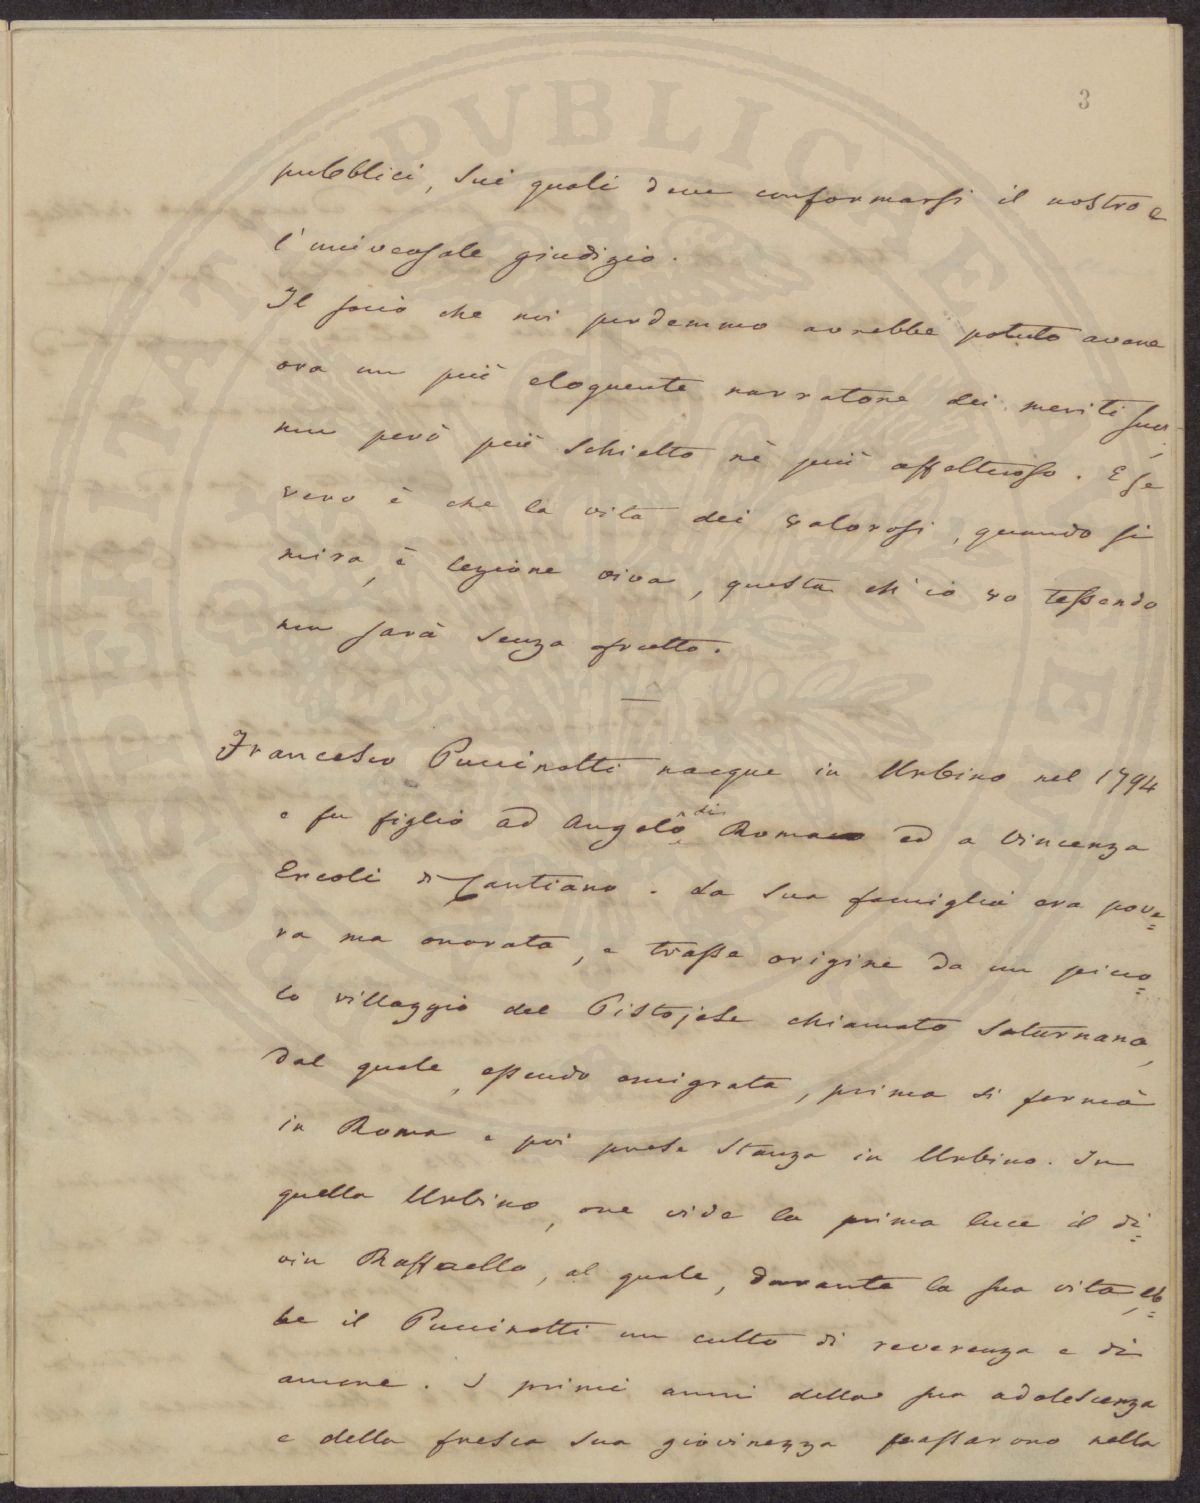 3
PVBLICAE
PROSPERITATI
pubblici, sui quali deve conformarsi il nostro e
l'universale giudizio.
Il socio che noi perdemmo avrebbe potuto avere
ora un più eloquente narratore dei meriti suoi,
non però più schietto nè più affettuoso. E se
vero è che la vita dei valorosi, quando si
mira, è lezione viva, questa ch'io vo tessendo
non sarà senza frutto.
Francesco Puccinotti nacque in Urbino nel 1794
e fu figlio ad Angelo di Roma ed a Vincenza
Ercoli di Cantiano. La sua famiglia era pove=
ra ma onorata, e trasse origine da un picco=
lo villaggio del Pistojese chiamato Saturnana,
dal quale, essendo emigrata, prima si fermò
in Roma e poi prese stanza in Urbino. In
quella Urbino, ove vide la prima luce il di=
vin Raffaello, al quale, durante la sua vita, eb=
be il Puccinotti un culto di reverenza e di
amore. I primi anni della sua adolescenza
e della fresca sua giovinezza passarono nella